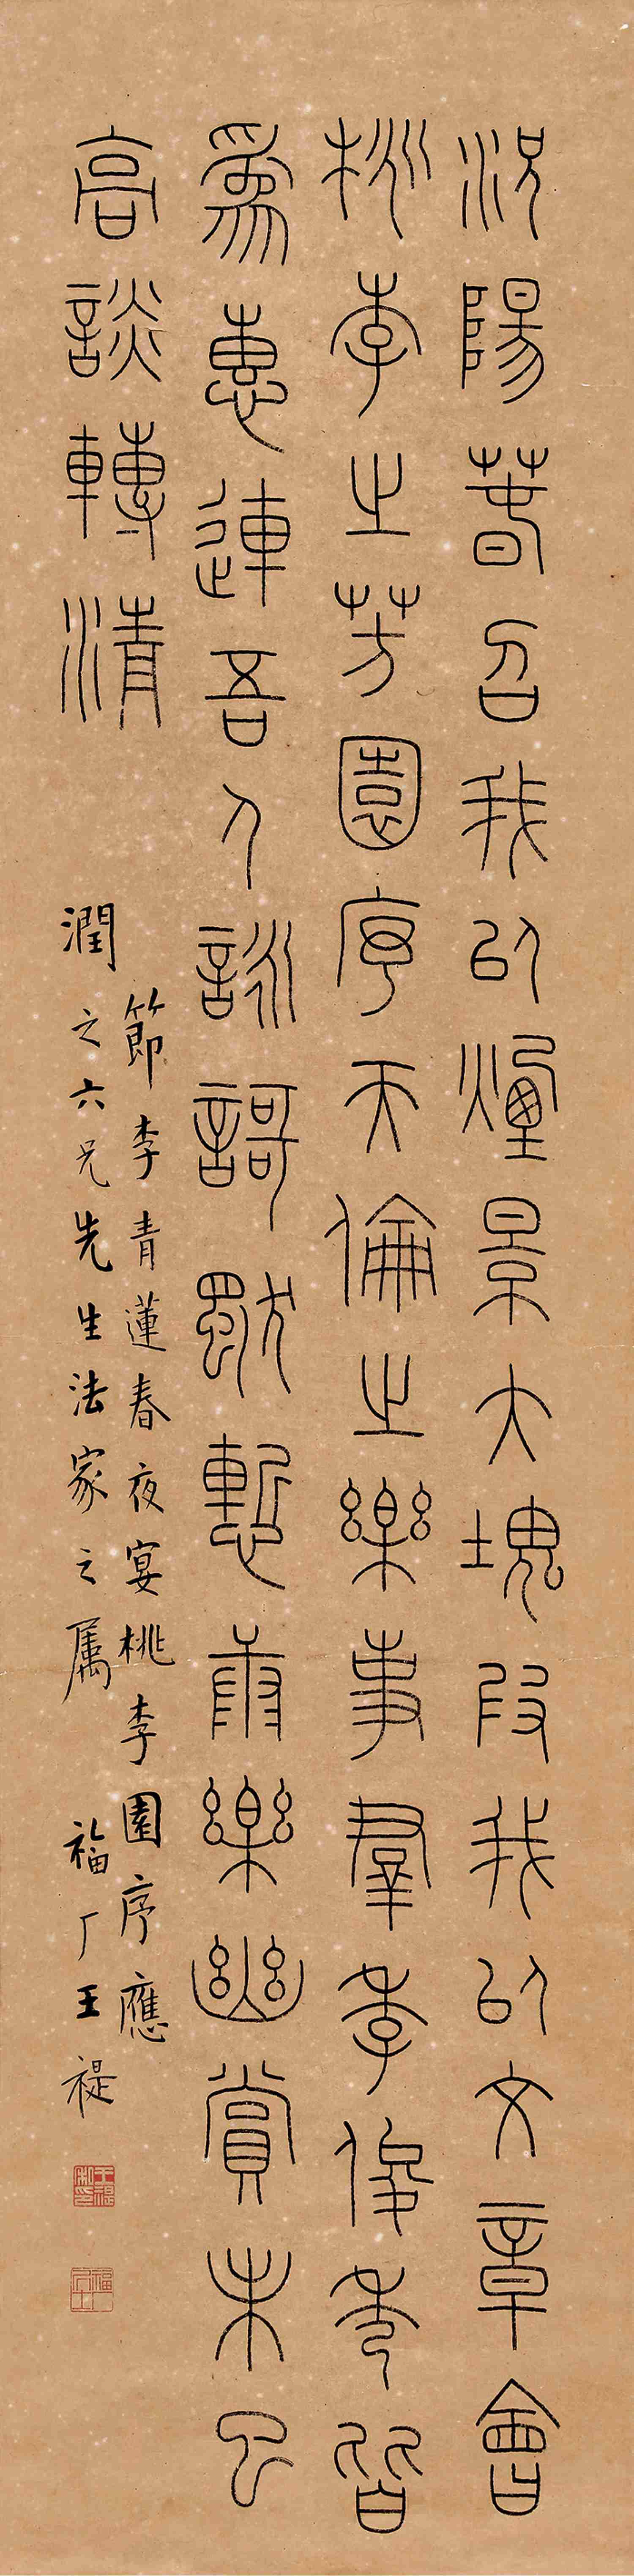 況陽春召我以煙景大塊叚我以文章會
桃李之芳園序天倫之樂事羣季俊秀皆
為惠連吾人詠謌獨慙康樂幽賞未已
高談轉清
節李青蓮春夜宴桃李園序應
潤之六兄先生法家之屬 福厂王禔
王禔私印